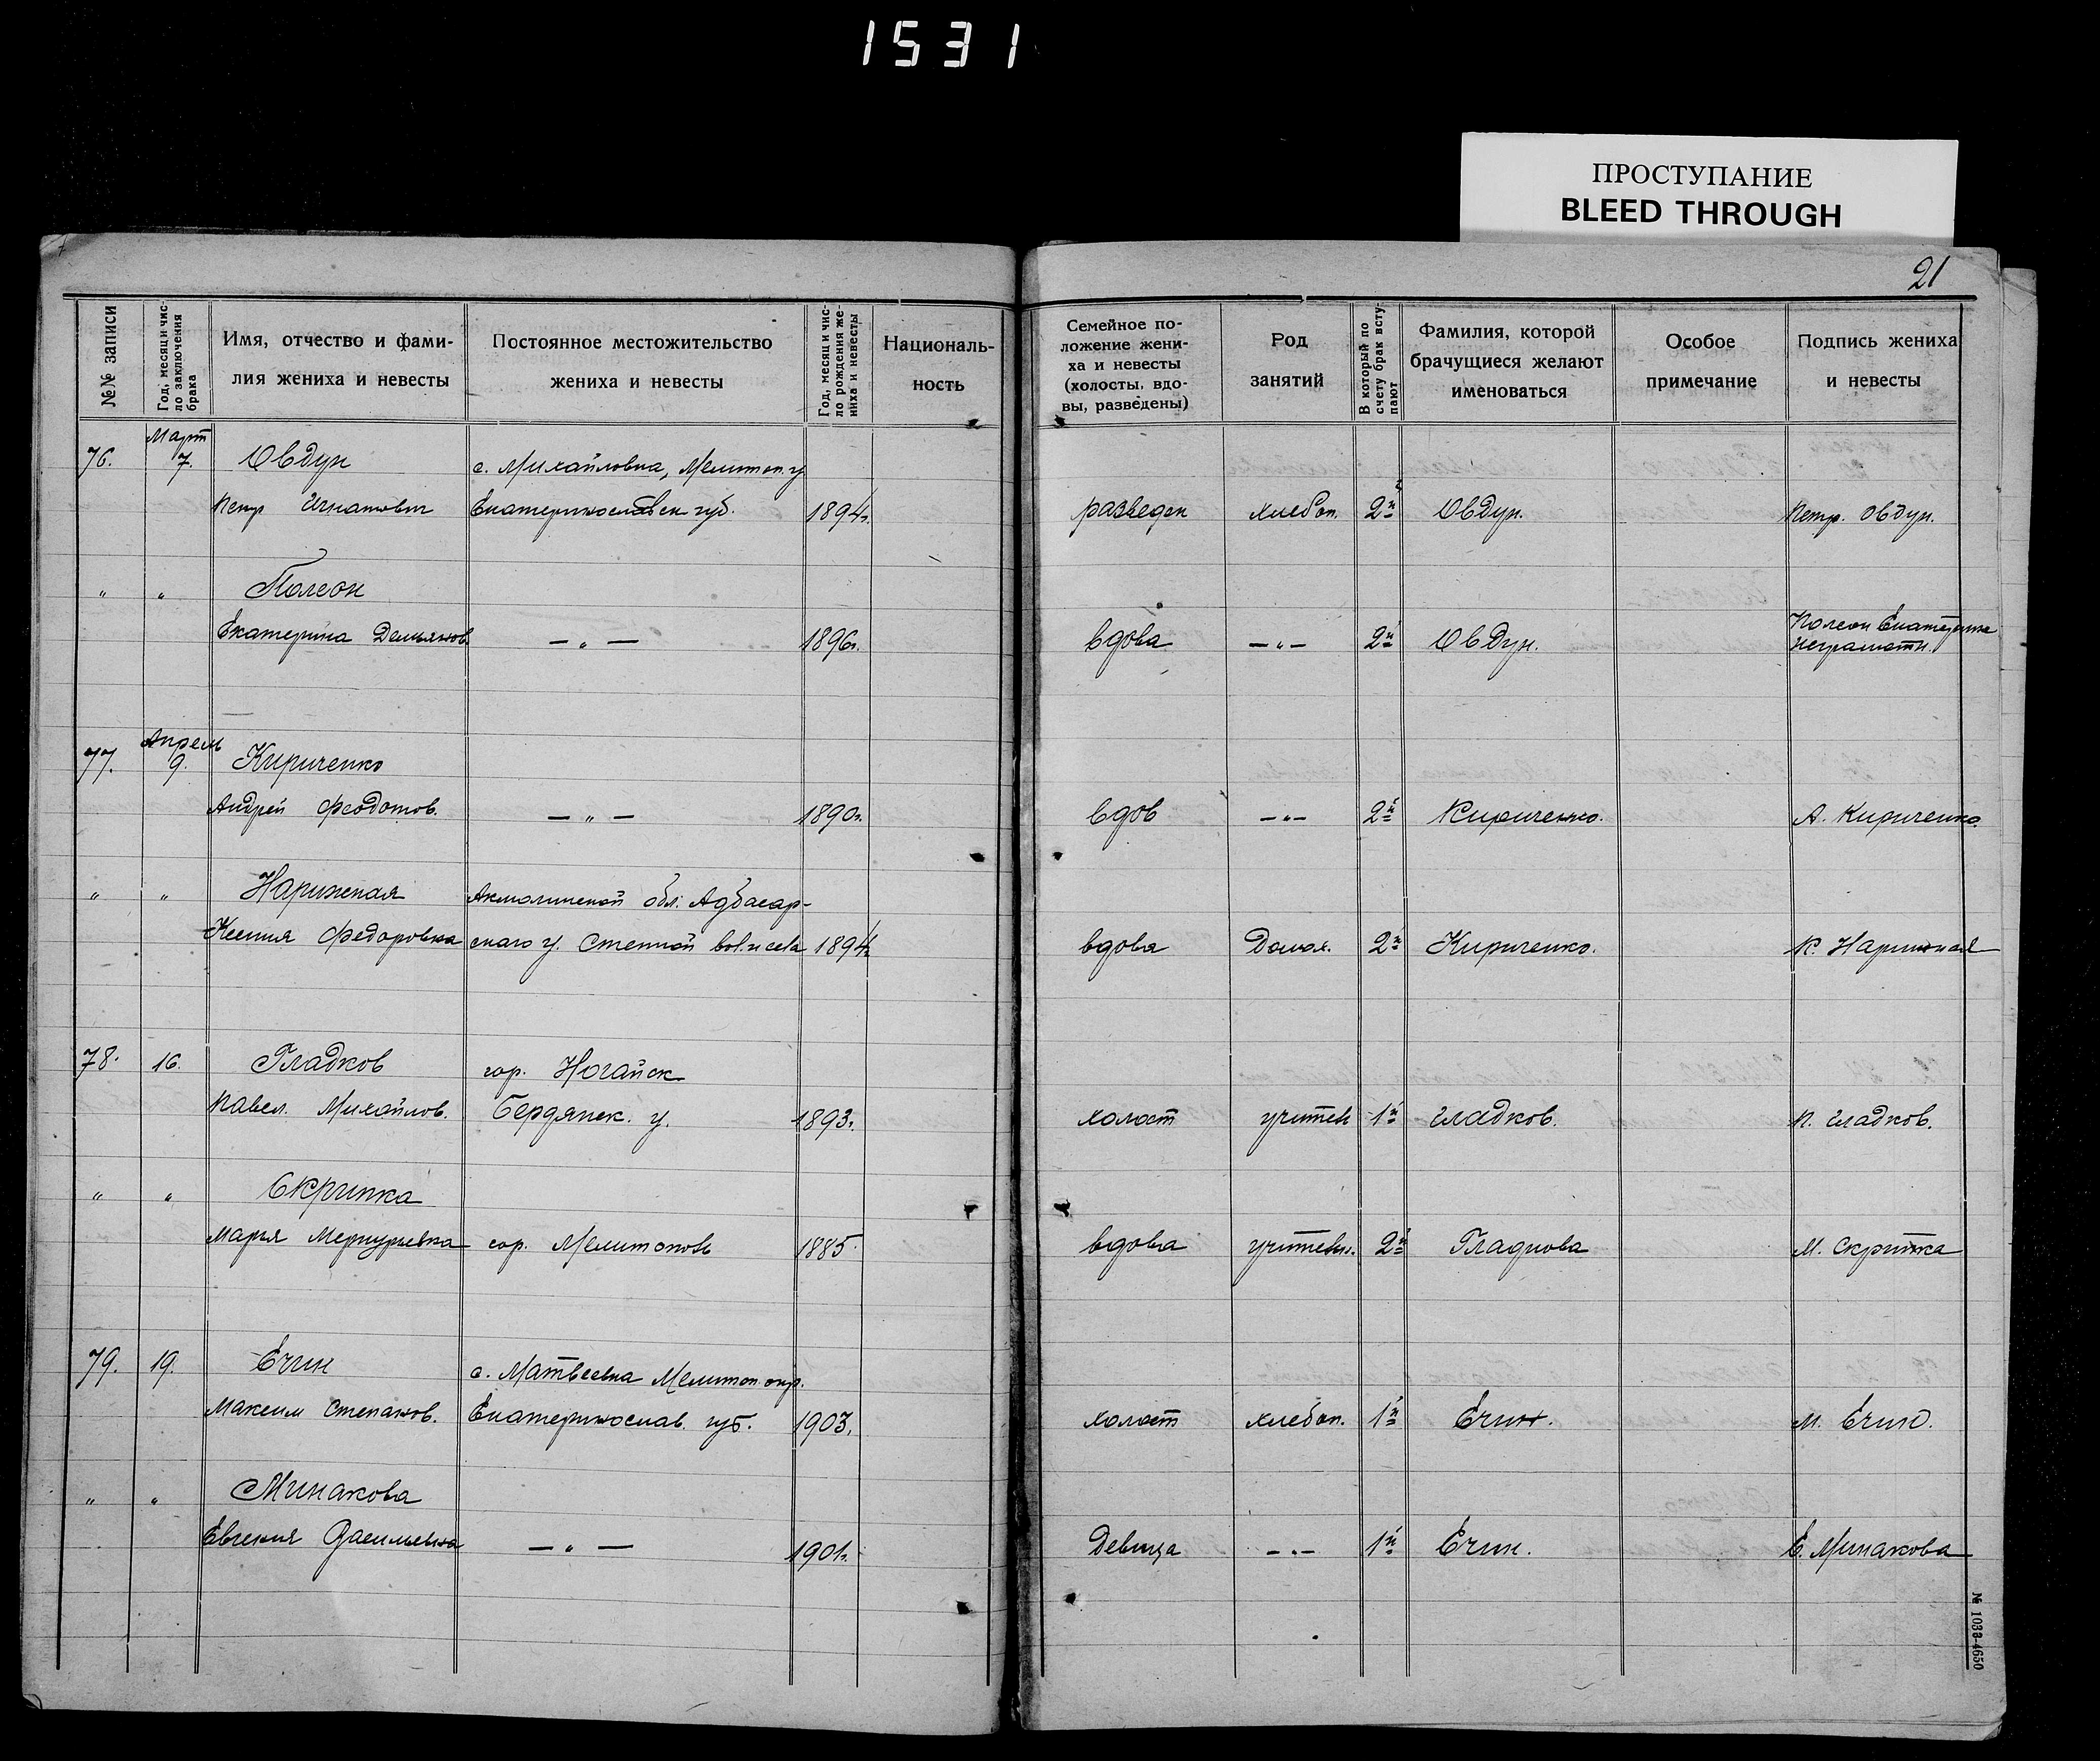 1531
ПРОСТУПАНИЕ
BLEED THROUGH
21
№№ записи
Год, месяц и чис-
ло заключения
брака
Имя, отчество и фами-
лия жениха и невесты
Постоянное местожительство
жениха и невесты
Год, месяц и чис-
ло рождения же-
ниха и невесты
Националь-
ность
Семейное по-
ложение жени-
ха и невесты
(холосты, вдо-
вы, разведены)
Род
занятий
В который по
счету брак всту-
пают
Фамилия, которой
брачущиеся желают
именоваться
Особое
примечание
Подпись жениха
и невесты
Март
76. 7. Овдун с. Михайловка, Мелитоп. у
Петр Игнатович Екатеринославск губ. 1894г. разведен хлебоп. 2й Овдун. Петр. Овдун.
" " Полеон
Екатерина Демьянов. — " — 1896г. вдова — " — 2й Овдун. Полеон Екатерина
неграмотн.
Апрель
77. 9. Кириченко
Андрей Феодотов. — " — 1890г. вдов — " — 2й Кириченко. А. Кириченко.
" " Нарижная Акмолинской обл. Адбасар-
Ксения Федоровна скаго у. Степной вол. и села 1894г. вдова Домох. 2й Кириченко. К. Нарижная
78. 16. Гладков гор. Ногайск
Павел. Михайлов. Бердянск. у. 1893г. холост учитель 1й Гладков. П. Гладков.
" " Скрипка
Марья Меркурьевна гор. Мелитополь 1885 вдова учительн. 2й Гладкова М. Скрипка
79. 19. Ечин с. Матвеевка Мелитоп. окр.
Максим Степанов. Екатеринослав. губ. 1903. холост хлебоп. 1й Ечин. М. Ечин.
" " Минакова
Евгения — " — 1901г. Девица — " — 1й Ечин. Е. Минакова
№ 1033-4650